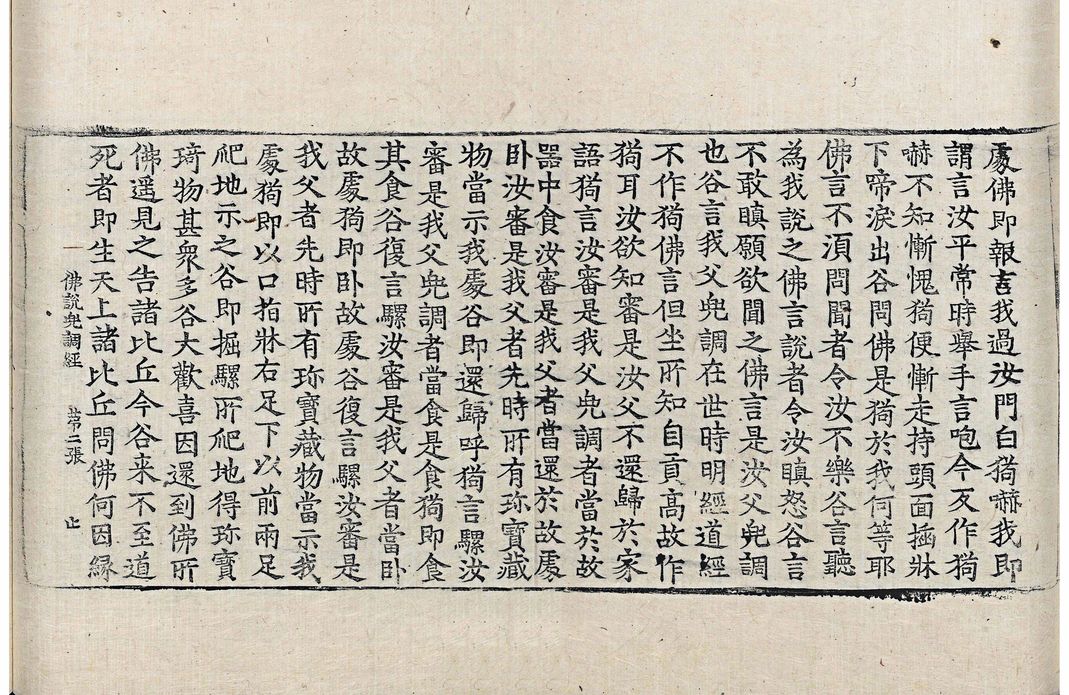 處佛即報言我過汝門白猗嚇我即
謂言汝平常時舉手言咆今反作猗
嚇不知慚愧猗便慚走持頭面插牀
下啼淚出谷問佛是猗於我何等耶
佛言不湏問聞者令汝不樂谷言聽
為我說之佛言說者令汝瞋怒谷言
不敢瞋願欲聞之佛言是汝父兠調
也谷言我父兠調在世時明經道經
不作猗佛言但坐所知自貢高故作
猗耳汝欲知審是汝父不還歸於家
語猗言汝審是我父兠調者當於故
器中食汝審是我父者當還於故處
卧汝審是我父者先時所有珎寶藏
物當示我處谷即還歸呼猗言騾汝
審是我父兠調者當食是食猗即食
其食谷復言騾汝審是我父者當卧
故處猗即卧故處谷復言騾汝審是
我父者先時所有珎寶藏物當示我
處猗即以口指牀右足下以前兩足
爬地示之谷即掘騾所爬地得珎寶
琦物甚衆多谷大歡喜因還到佛所
佛遥見之告諸比丘今谷来不至道
死者即生天上諸比丘問佛何因緣
佛說兠調經 第二張